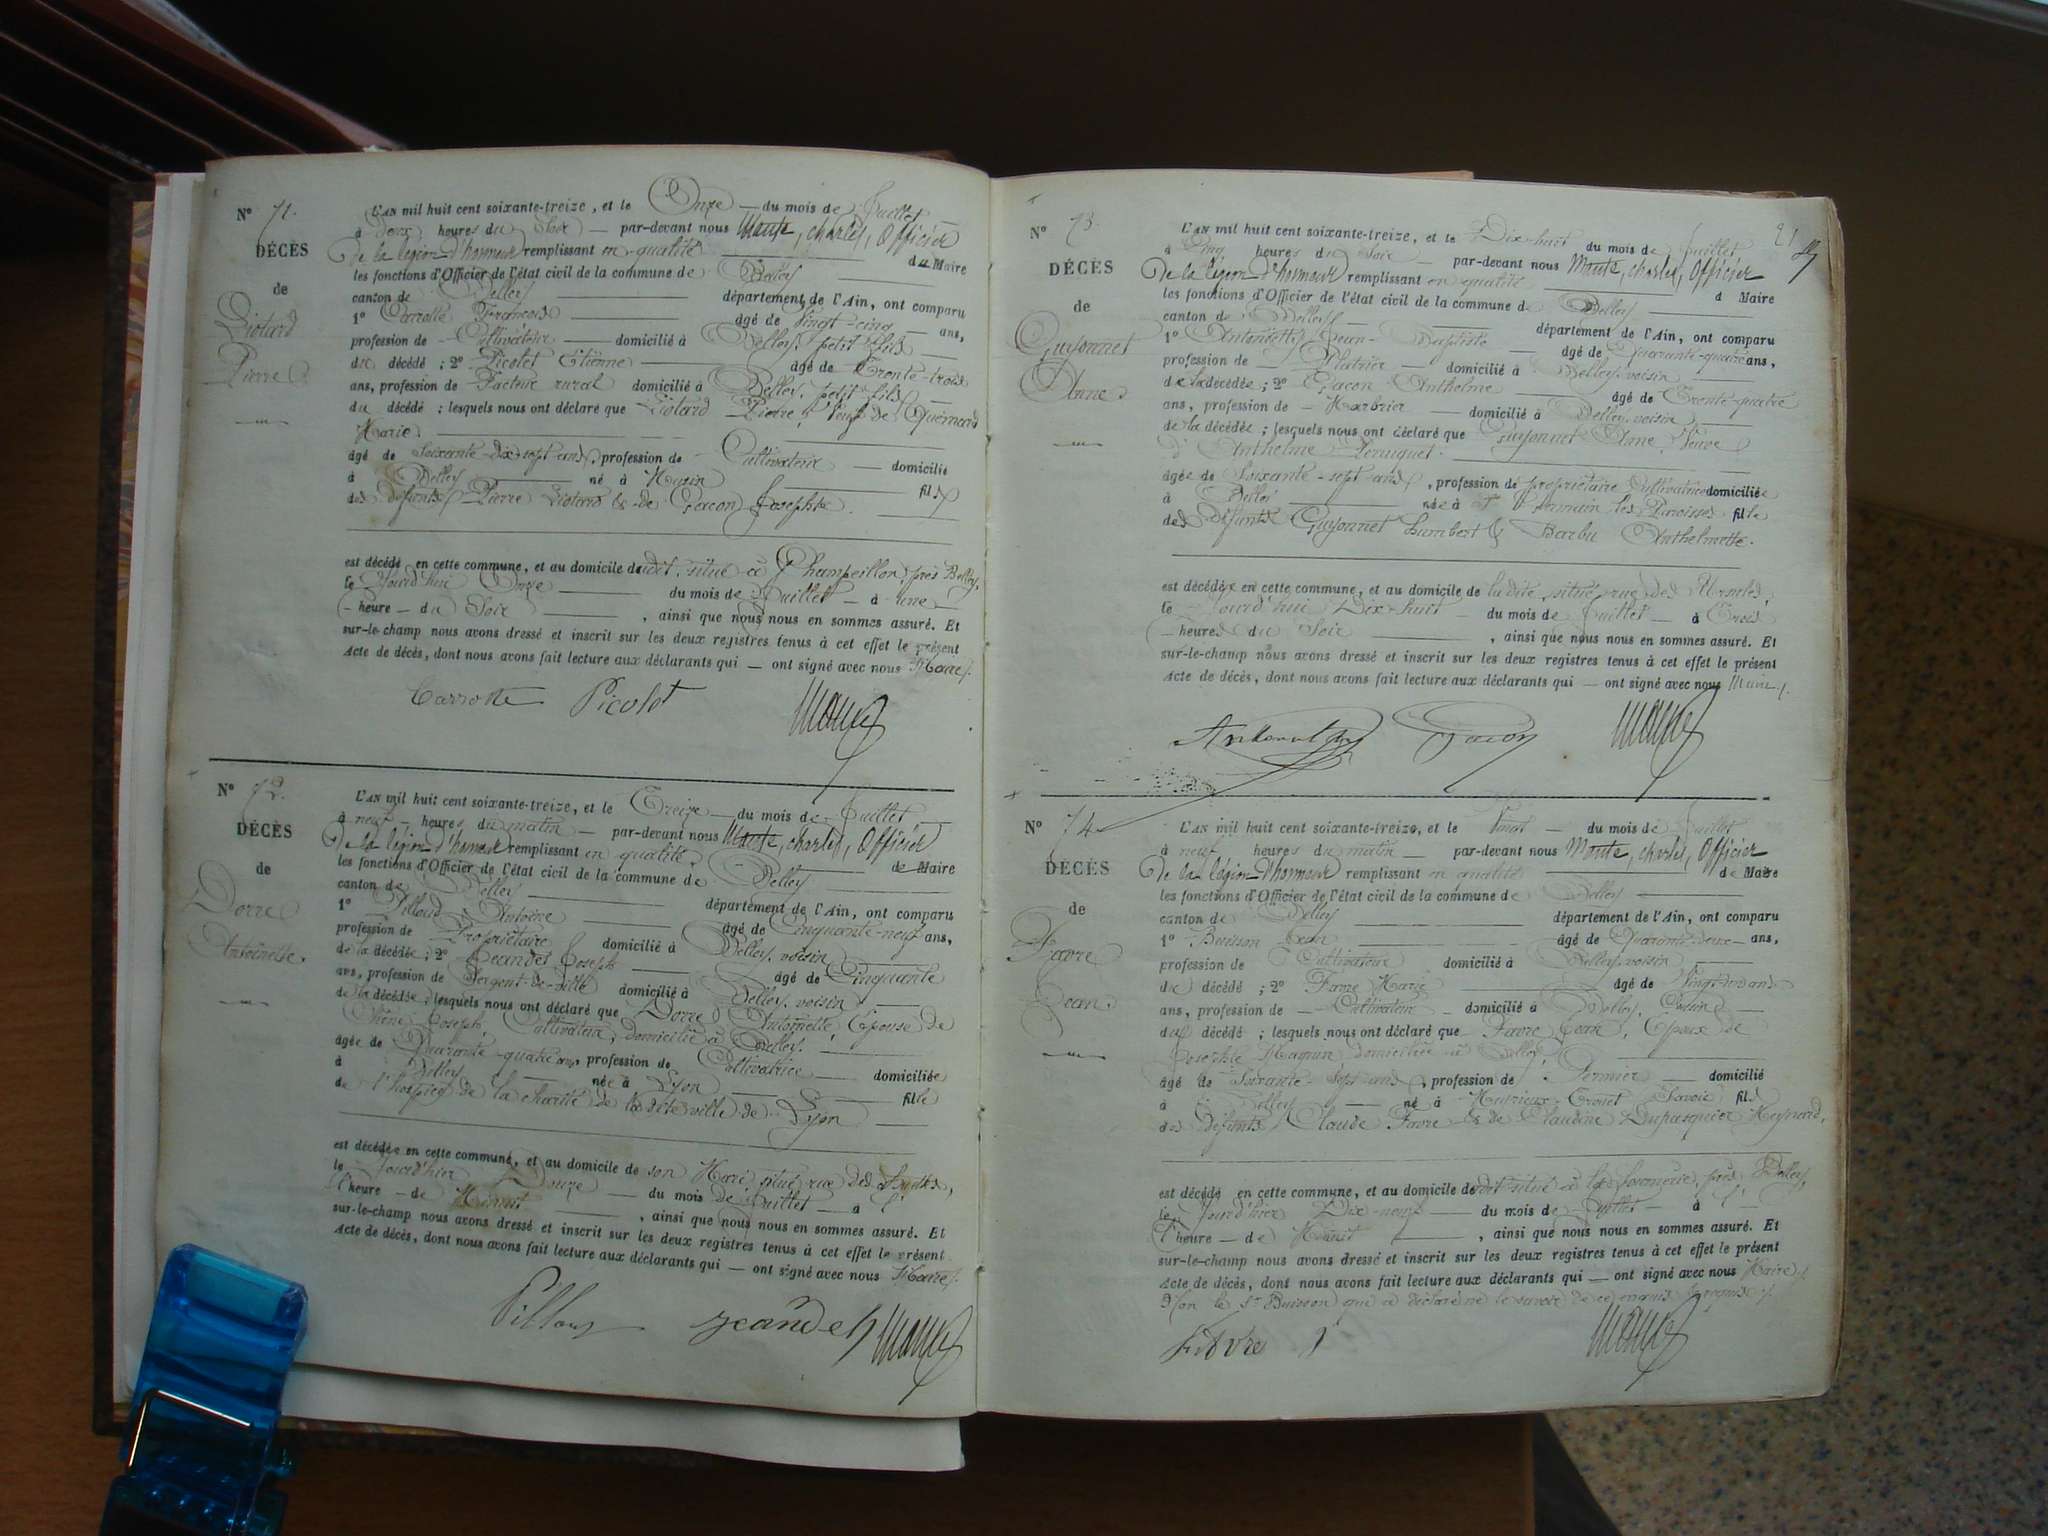 N° 71.
DÉCÈS
de
Liotard
Pierre
L'AN mil huit cent soixante-treize, et le Onze du mois de Juillet
à Deux heures du Soir par-devant nous Mante, charles, Officier
De la légion d'honneur remplissant en qualité du Maire
les fonctions d'Officier de l'état civil de la commune de Belley
canton de Belley département de l'Ain, ont comparu
1° Carrotte François âgé de Vingt-cinq ans,
profession de Cultivateur domicilié à Belley, petit fils
du décédé ; 2° Picolet Etienne âgé de Trente-trois
ans, profession de Facteur rural domicilié à Belley, petit fils
du décédé ; lesquels nous ont déclaré que Liotard Pierre, Veuf de
Marie
âgé de Soixante-Dix-sept ans, profession de Cultivateur domicilié
à Belley né à fils
des défunts Pierre Liotard & de Gacon Josephte.
est décédé en cette commune, et au domicile dudit, situé à près Belley,
le Jourd'hui Onze du mois de Juillet à une
heure du Soir, ainsi que nous nous en sommes assuré. Et
sur-le-champ nous avons dressé et inscrit sur les deux registres tenus à cet effet le présent
Acte de décès, dont nous avons fait lecture aux déclarants qui ont signé avec nous Maire.
Carrotte Picolet
N° 72.
DÉCÈS
de
Dorre
Antoinette.
L'AN mil huit cent soixante-treize, et le Treize du mois de Juillet
à neuf heures du matin par-devant nous Mante, charles, Officier
De la légion d'honneur remplissant en qualité de Maire
les fonctions d'Officier de l'état civil de la commune de Belley
canton de Belley département de l'Ain, ont comparu
1° Pilloud Antoine âgé de Cinquante-neuf ans,
profession de Propriétaire domicilié à Belley, voisin
de la décédée ; 2° Jeandet Joseph âgé de Cinquante
ans, profession de Sergent-de-ville domicilié à Belley, voisin
de la décédée ; lesquels nous ont déclaré que Dorre Antoinette, Epouse de
Chêne Joseph, Cultivateur, domicilié à Belley.
âgée de Quarante-quatre ans, profession de Cultivatrice domiciliée
à Belley née à Lyon fille
de l'hospice de la charité de la dite ville de Lyon
est décédée en cette commune, et au domicile de son Mari, situé rue des
le Jourd'hier Douze du mois de Juillet à l'
heure de Minuit, ainsi que nous nous en sommes assuré. Et
sur-le-champ nous avons dressé et inscrit sur les deux registres tenus à cet effet le présent
Acte de décès, dont nous avons fait lecture aux déclarants qui ont signé avec nous Maire.
Pilloud Jeandet
N° 73.
DÉCÈS
de
Guyonnet
Anne
L'AN mil huit cent soixante-treize, et le Dix-huit du mois de Juillet
à Cinq heures du Soir par-devant nous Mante, charles, Officier
De la légion d'honneur remplissant en qualité d Maire
les fonctions d'Officier de l'état civil de la commune de Belley
canton de Belley département de l'Ain, ont comparu
1° Jean-Baptiste âgé de Quarante-quatre ans,
profession de Platrier domicilié à Belley, voisin
de la décédée ; 2° Gacon Anthelme âgé de Trente-quatre
ans, profession de Marbrier domicilié à Belley, voisin
de la décédée ; lesquels nous ont déclaré que Guyonnet Anne, Veuve
d'Anthelme
âgée de Soixante-sept ans, profession de propriétaire Cultivatrice domiciliée
à Belley née à St Germain les Paroisses fille
des défunts Guyonnet Humbert & Barbu Anthelmette.
est décédée en cette commune, et au domicile de la dite, situé rue des
le Jourd'hui Dix-huit du mois de Juillet à Trois
heures du Soir, ainsi que nous nous en sommes assuré. Et
sur-le-champ nous avons dressé et inscrit sur les deux registres tenus à cet effet le présent
Acte de décès, dont nous avons fait lecture aux déclarants qui ont signé avec nous Maire.
Gacon
N° 74
DÉCÈS
de
Favre
Jean
L'AN mil huit cent soixante-treize, et le Vingt du mois de Juillet
à neuf heures du matin par-devant nous Mante, charles, Officier
De la légion d'honneur remplissant en qualité de Maire
les fonctions d'Officier de l'état civil de la commune de Belley
canton de Belley département de l'Ain, ont comparu
1° Buisson Jean âgé de Quarante-deux ans,
profession de Cultivateur domicilié à Belley, voisin
du décédé ; 2° Favre Marie âgé de
ans, profession de Cultivateur domicilié à Belley, Cousin
du décédé ; lesquels nous ont déclaré que Favre Jean, Epoux de
Josephte Magnin domiciliée à Belley,
âgé de Soixante-sept ans, profession de Fermier domicilié
à Belley né à Savoie fils
des défunts Claude Favre & de Claudine Dupasquier
est décédé en cette commune, et au domicile dudit situé à la près Belley,
le Jourd'hier Dix-neuf du mois de Juillet à l'
heure de Minuit, ainsi que nous nous en sommes assuré. Et
sur-le-champ nous avons dressé et inscrit sur les deux registres tenus à cet effet le présent
Acte de décès, dont nous avons fait lecture aux déclarants qui ont signé avec nous Maire
Non le Sr Buisson qui a déclaré ne le savoir de ce enquis & requis.
Favre